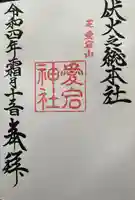 伏火之総本社
芝愛宕山
愛宕
神社
令和四年霜月十三日奉拝